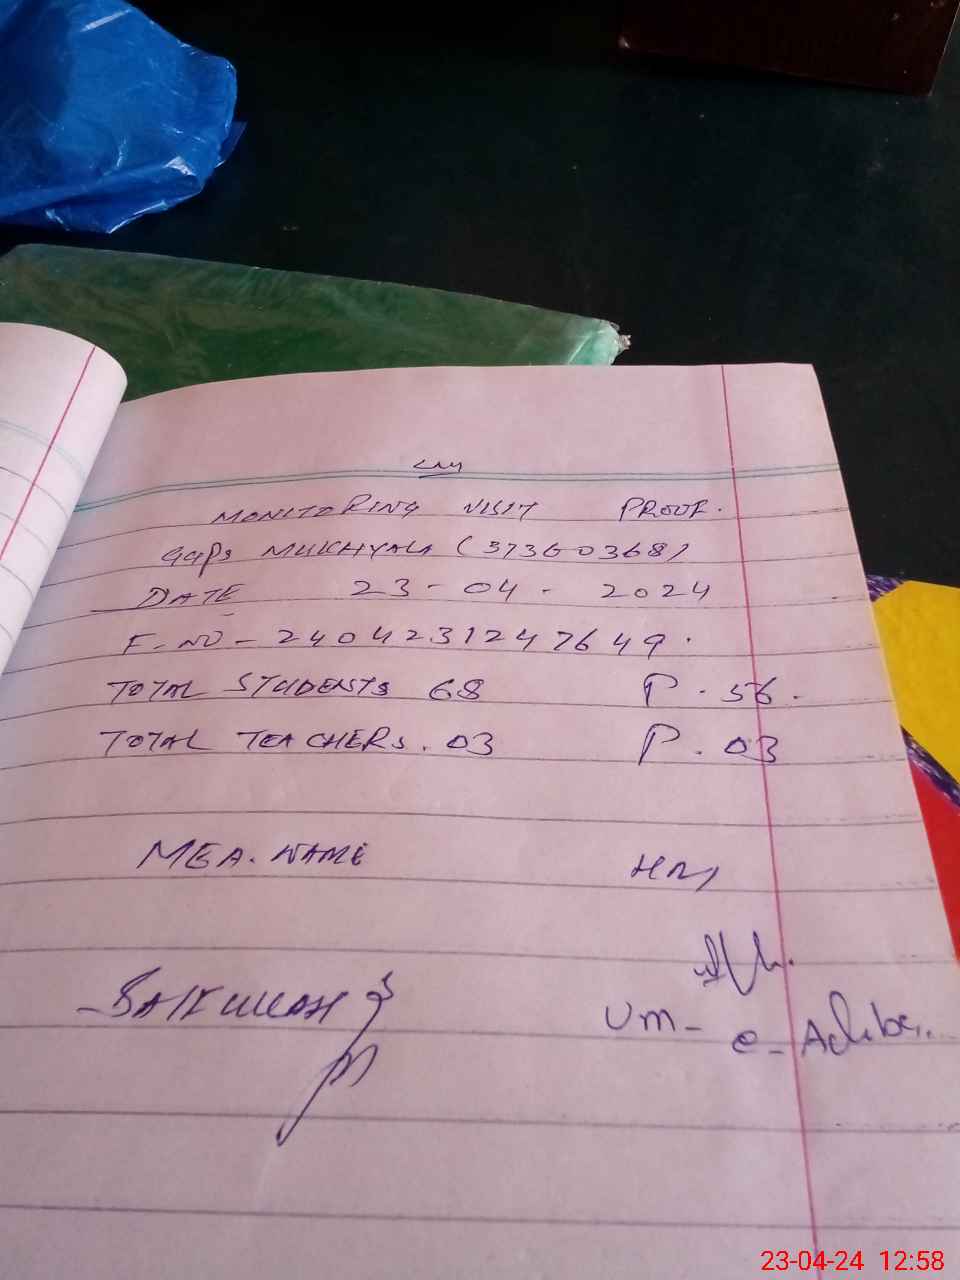 MONITORING VISIT PROOF.
GGPS MUKHYALA (37360368)
DATE 23-04-2024
F.NO-2404231247649.
TOTAL STUDENTS 68 P.56.
TOTAL TEACHERS.03 P.03
MEA.NAME HM,
SAIFULLAH
Um-e-Adiba.
23-04-24 12:58